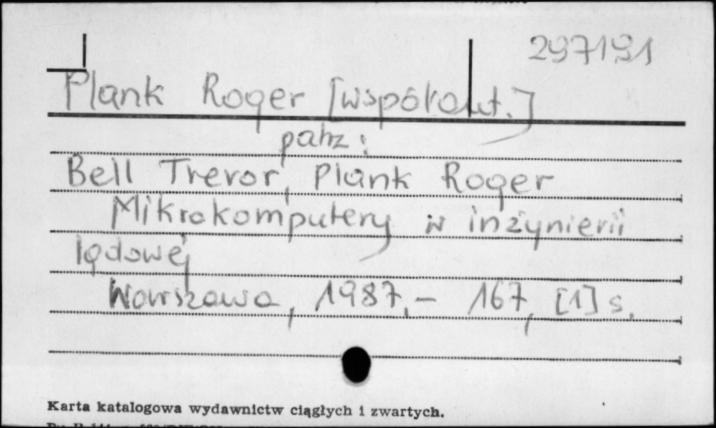 297191
Plank Roger [współaut.]
patrz:
Bell Trevor, Plank Roger
Mikrokomputery w inżynierii
lądowej
Warszawa, 1987.- 167, [1] s.
Karta katalogowa wydawnictw ciągłych i zwartych.